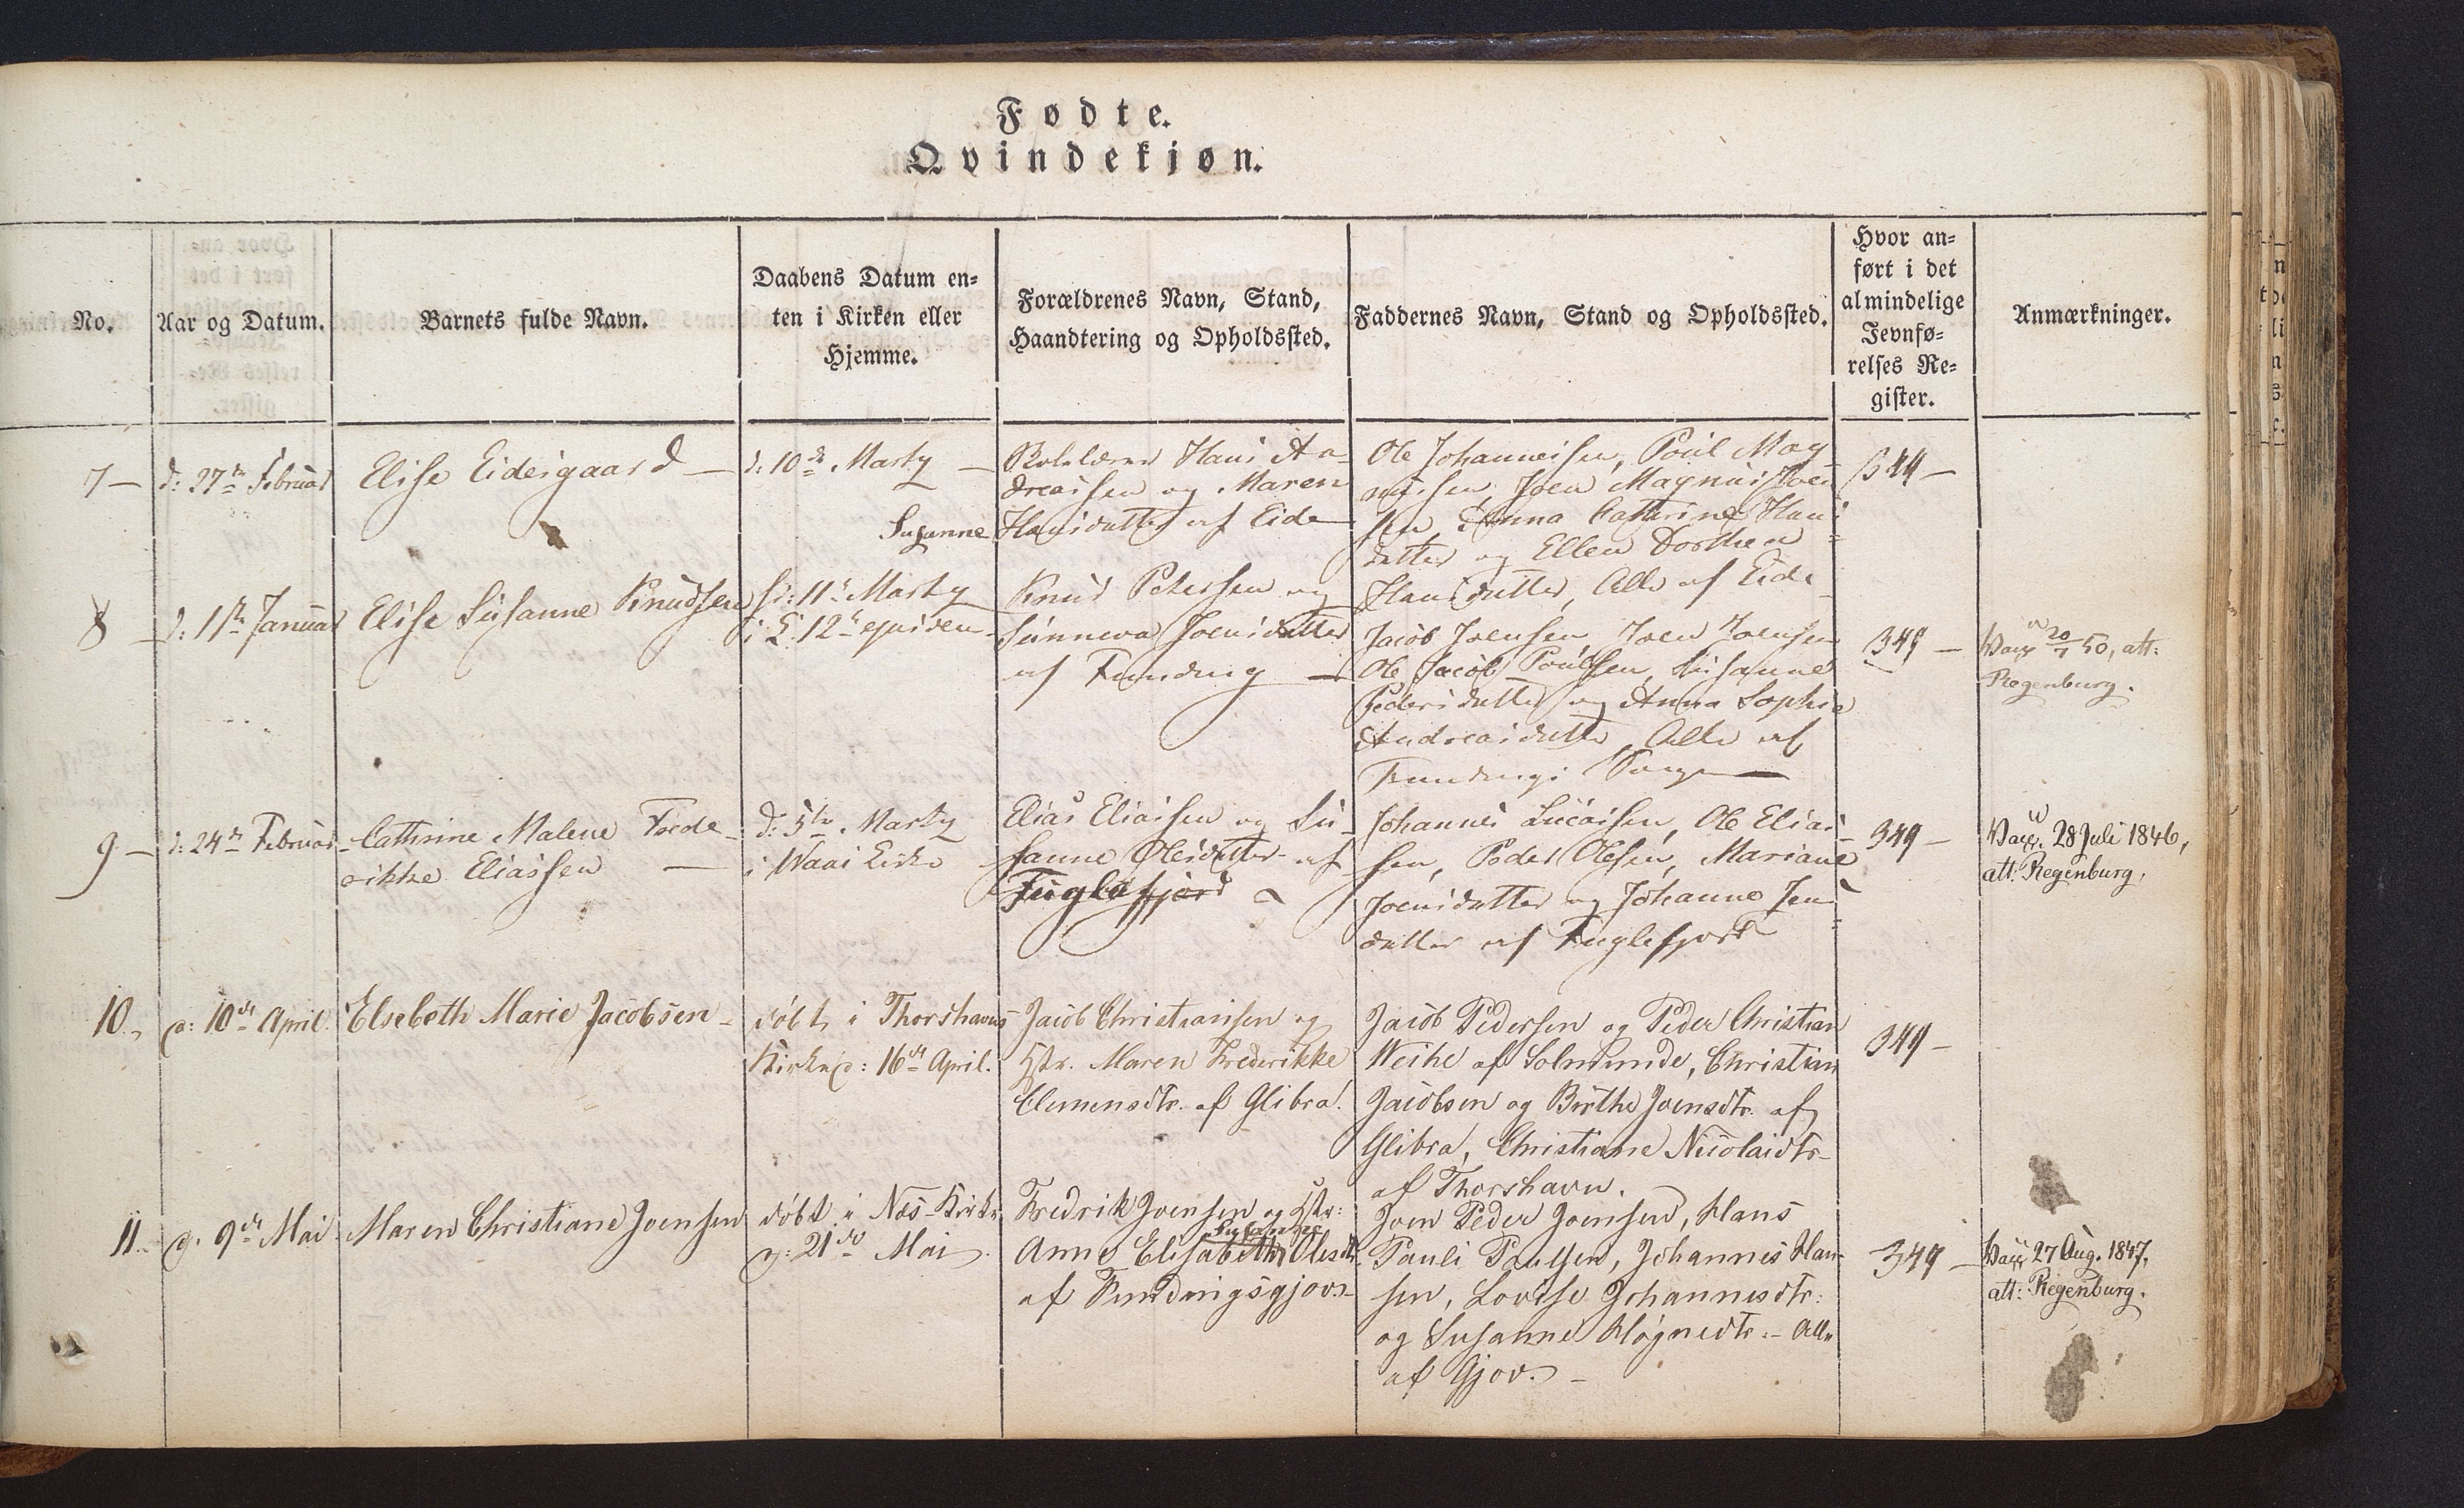 Fødte.
Qvindekjøn.
No.
Aar og Datum.
Barnets fulde Navn.
Daabens Datum en=
ten i Kirken eller
Hjemme.
Forældrenes Navn, Stand,
Haandtering og Opholdssted.
Faddernes Navn, Stand og Opholdssted.
Hvor an=
ført i det
almindelige
Jevnfø=
relses Re=
gister.
Anmærkninger.
7 —
d: 27de Februar
Elise Eidesgaard —
d: 10de Marty —
Hans An-
dreassen og Maren
Susanne Hansdatter af Eide
Ole Johannessen, Poul Mag
nussen, Joen Magnus Joen
sen, Anna Cathrine Hans
datter og Ellen Dorthea
Hansdatter, Alle af Eide
349 —
8 —
d: 11te Januar
Elise Susanne Knudsen
d: 11te Marty
i K. 12te ejusdem
Knud Petersen og
Sunneva Joensdatter
af Funding —
Jacob Joensen, Joen Joensen
Ole Jacob Poulsen, Susanne
Pedersdatter og Anna Sophie
Andreasdatter, Alle af
Fundings
349 —
Vacc 20/7 50, att:
Regenburg.
9 —
d: 24de Februar
Cathrine Malene Frede-
rikke Eliassen —
d: 5te Marty
i Waai Kirke
Elias Eliassen og Su-
sanne Olesdatter af
Fuglefjord
Johannes Lucassen, Ole Elias-
sen, Peder Olesen, Mariane
Joensdatter og Johanne Jens
datter af Fuglefjord
349 —
Vacc. 28 Juli 1846,
att: Regenburg.
10.
d: 10de April.
Elsebeth Marie Jacobsen —
døbt i Thorshavns
Kirke d: 16de April.
Jacob Christiansen og
Hstr. Maren Frederikke
Clemensdtr. af Glibra.
Jacob Pedersen og Peder Christian
Weihe af Solmunde, Christian
Jacobsen og Birthe Joensdtr. af
Glibra, Christiane Nicolaidtr.
af Thorshavn.
349 —
11.
d. 9de Mai
Maren Christiane Joensen
døbt i Næs-Kirke
d: 21de Mai.
Fredrik Joensen og Hstr:
Susanne
Anne Elisabeth Olesdtr.
af Fundingsgjov.
Joen Peder Joensen, Hans
Pauli Paulsen, Johannes Han-
sen, Lovise Johannesdtr:
og Susanne Høgnedtr. - Alle
af Gjov. —
349 —
Vacc 27 Aug. 1847.
att: Regenburg.